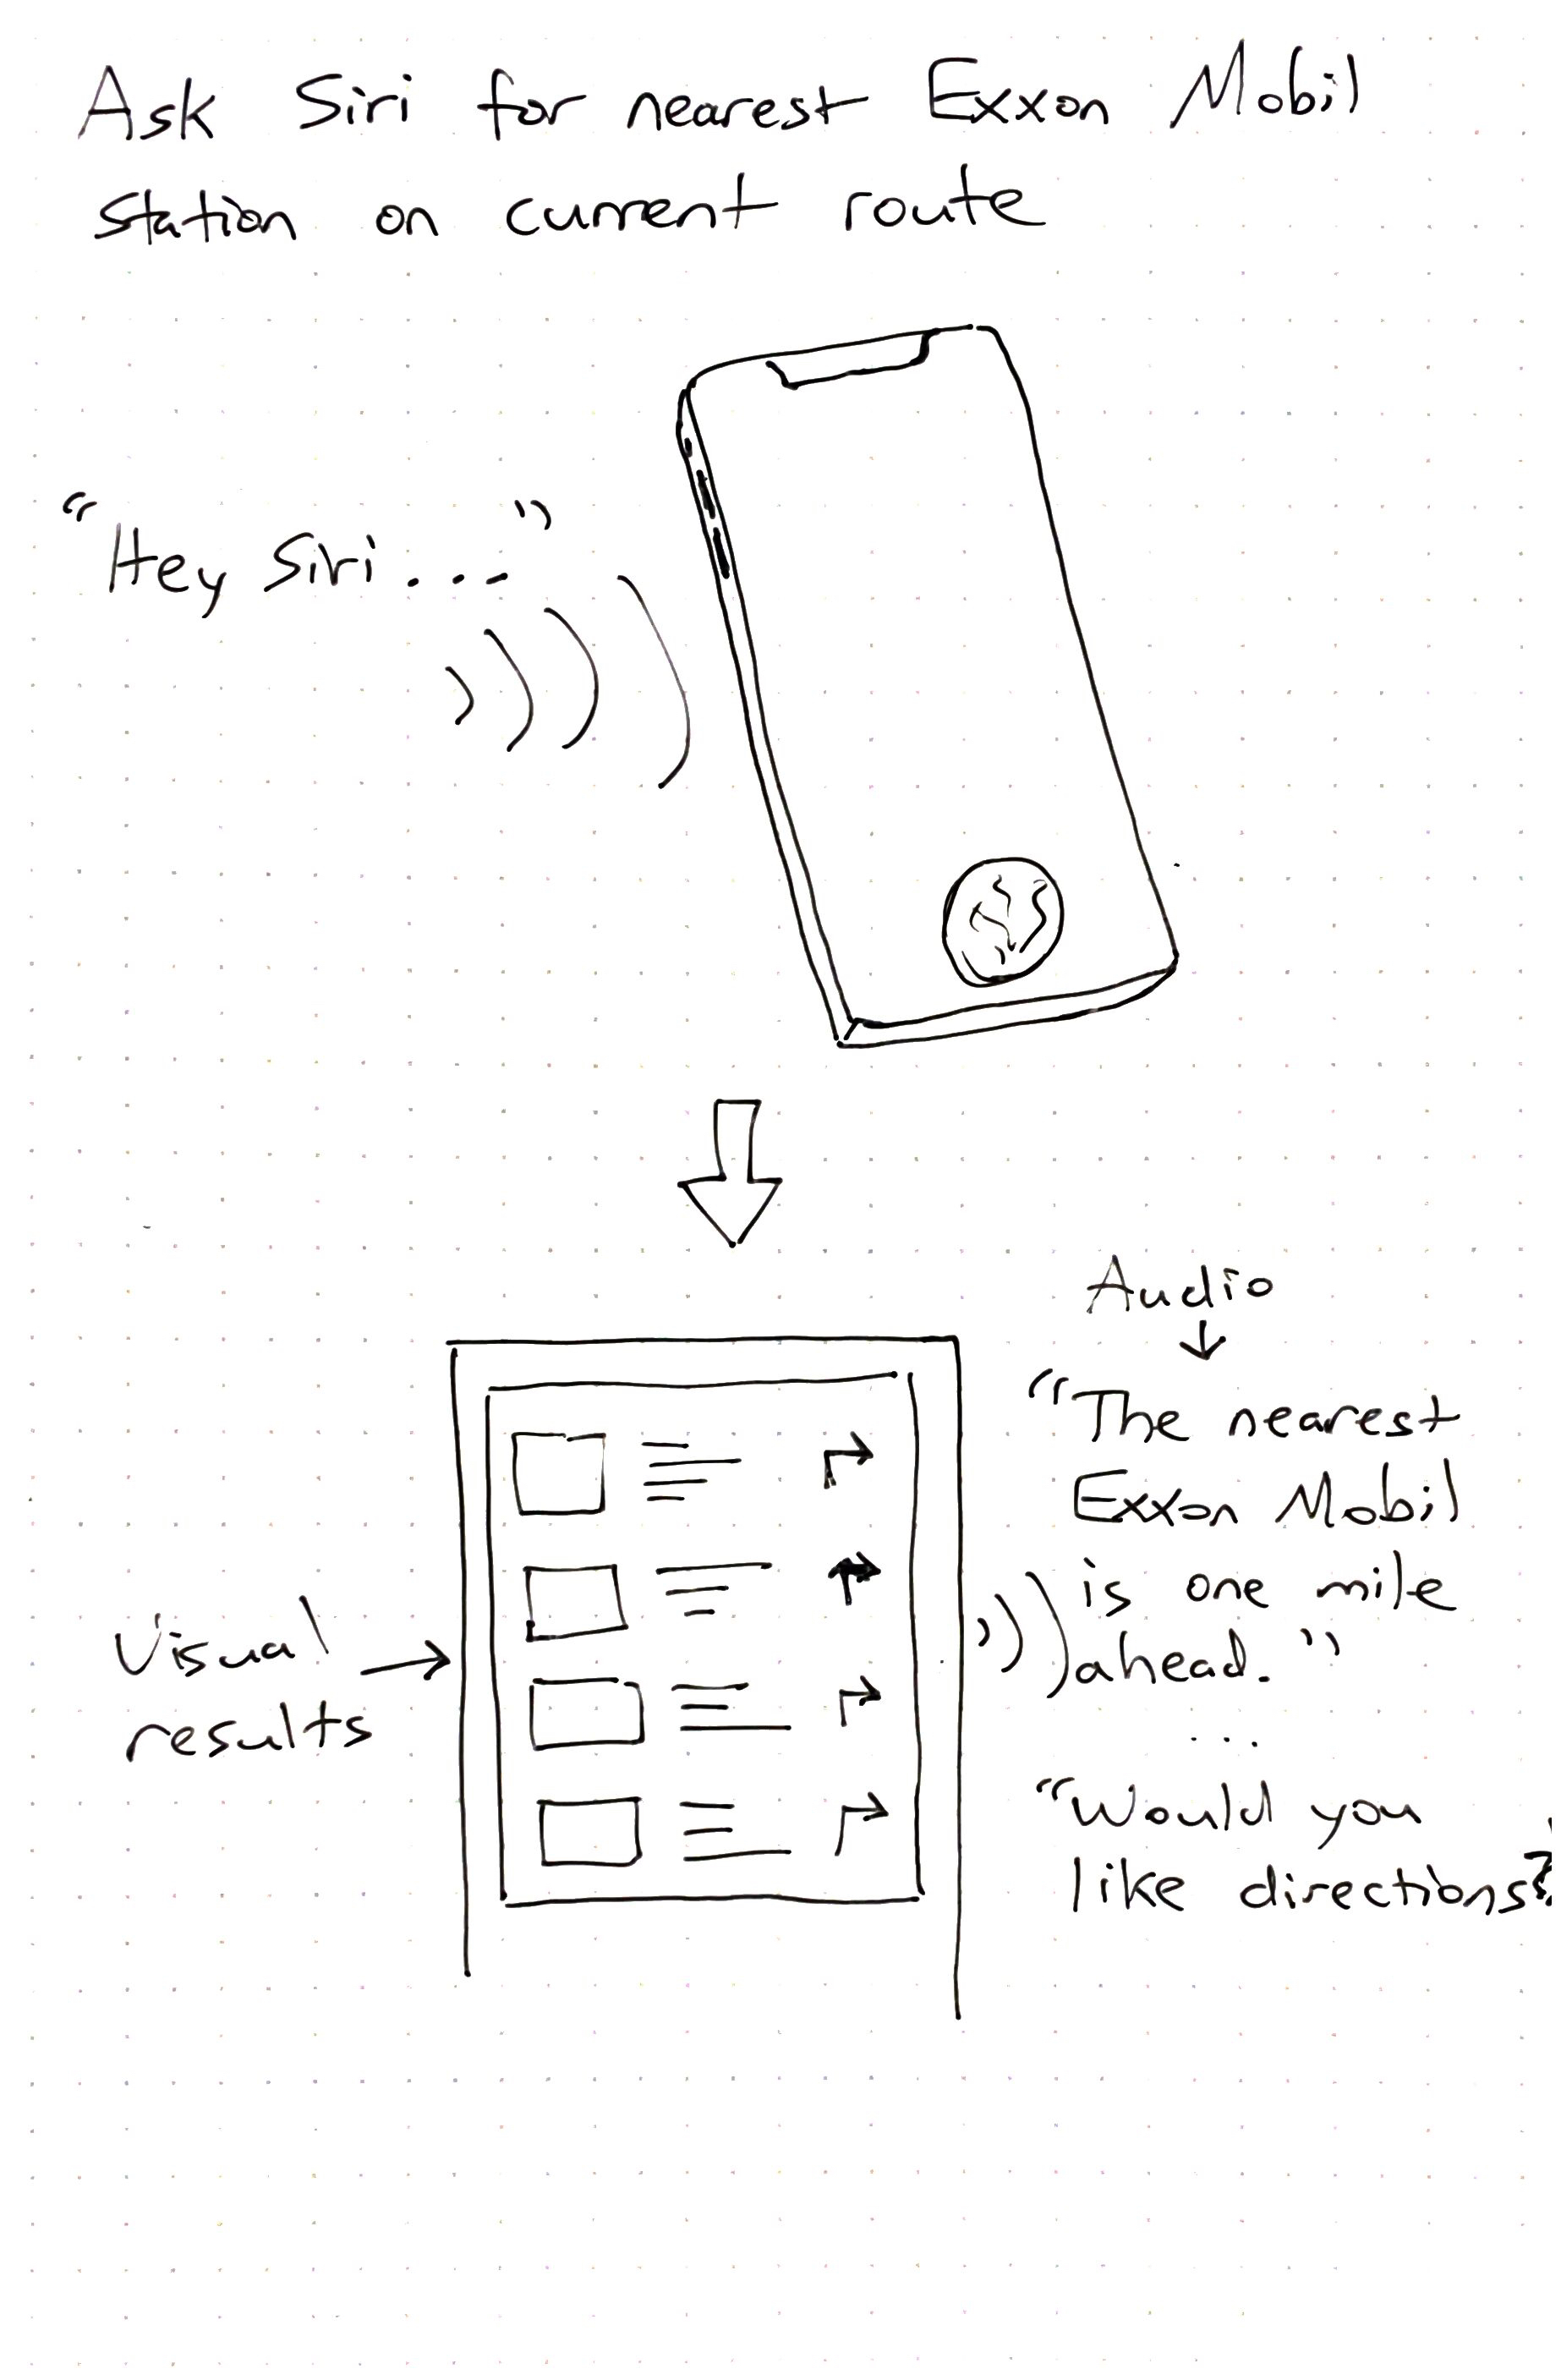 Ask Siri for nearest Exxon Mobil
station on current route
"Hey Siri..."
Audio
"The nearest
Exxon Mobil
is one mile
ahead."
...
"Would you
like directions?
Visual
results